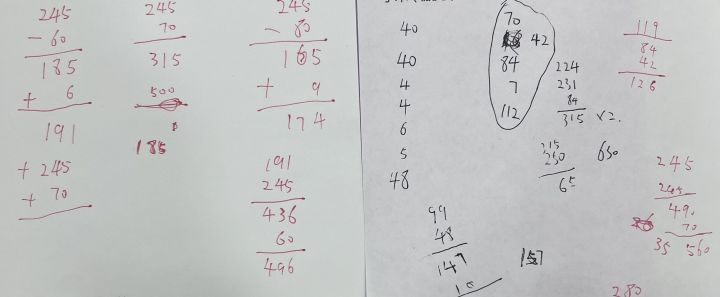 245
- 60
185
+ 6
191
+ 245
+ 70
245
70
315
500
185
245
- 80
165
+ 9
174
191
245
436
60
496
40
40
4
4
6
5
48
70
42
84
7
112
224
231
84
315 x2.
250
630
65
99
48
147
157
119
84
42
126
245
245
490
70
35 560
280